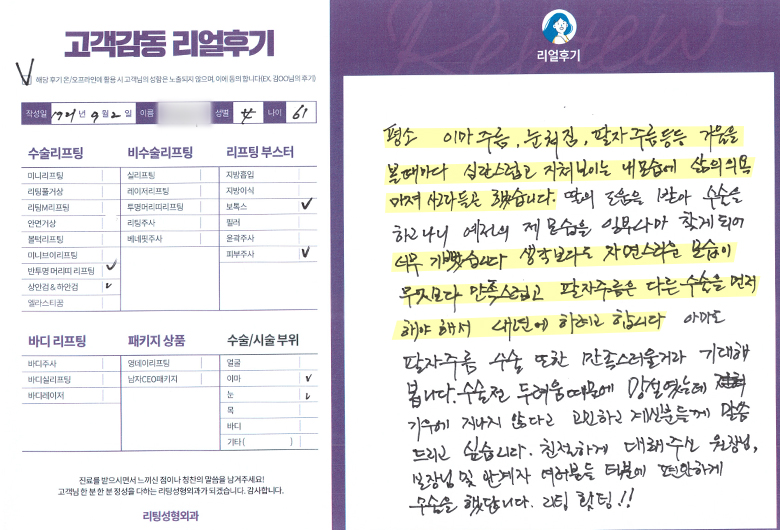 고객감동 리얼후기
해당 후기 온/오프라인에 활용 시 고객님의 성함은 노출되지 않으며, 이에 동의 합니다(EX. 김OO님의 후기)
작성일 년 9월 2일 이름 성별 女 나이 61
수술리프팅
미니리프팅
리팅풀거상
리팅M리프팅
안면거상
볼턱리프팅
미니브이리프팅
반투명 머리띠 리프팅
상안검 & 하안검
엘라스티꿈
비수술리프팅
실리프팅
레이저리프팅
투명머리띠리프팅
리팅주사
베네핏주사
리프팅 부스터
지방흡입
지방이식
보톡스
필러
윤곽주사
피부주사
바디 리프팅
바디주사
바디실리프팅
바디레이저
패키지 상품
영데이리프팅
남자CEO패키지
수술/시술 부위
얼굴
이마
눈
목
바디
기타 ( )
진료를 받으시면서 느끼신 점이나 칭찬의 말씀을 남겨주세요!
고객님 한 분 한 분 정성을 다하는 리팅성형외과가 되겠습니다. 감사합니다.
리팅성형외과
Review
리얼후기
평소 이마주름, 눈쳐짐, 팔자주름등등 거울을
볼때마다 심란스럽고 지쳐보이는 내모습에 삶의의욕
마져 사라들곤 했습니다. 딸의 도움을 받아 수술을
하고나니 예전의 제 모습을 일부나마 찾게되어
너무 기뻤습니다 생각보다도 자연스러운 모습이
무엇보다 만족스럽고 팔자주름은 다른수술을 먼저
해야 해서 내년에 하려고 합니다 아마도
팔자주름 수술 또한 만족스러울거라 기대해
봅니다. 수술전 두려움때문에 망설였는데
기우에 지나지 않다고 고민하고 계신분들께 말씀
드리고 싶습니다. 친절하게 대해주신 원장님,
실장님 및 관계자 여러분들 덕분에 편안하게
수술을 했답니다. 리팅 홧팅!!